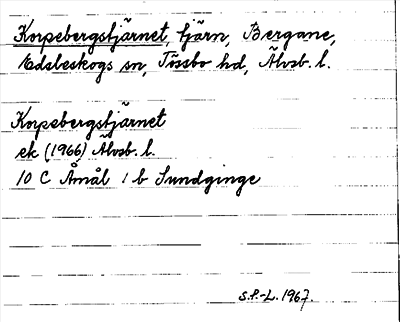 Korpebergstjärnet, tjärn, Bergane,
Edsleskogs sn, Tössbo hd, Älvsb. l.
Korpebergstjärnet
ek (1966) Älvsb. l.
10 C Åmål 1 b Sundginge
S.P.-L. 1967.